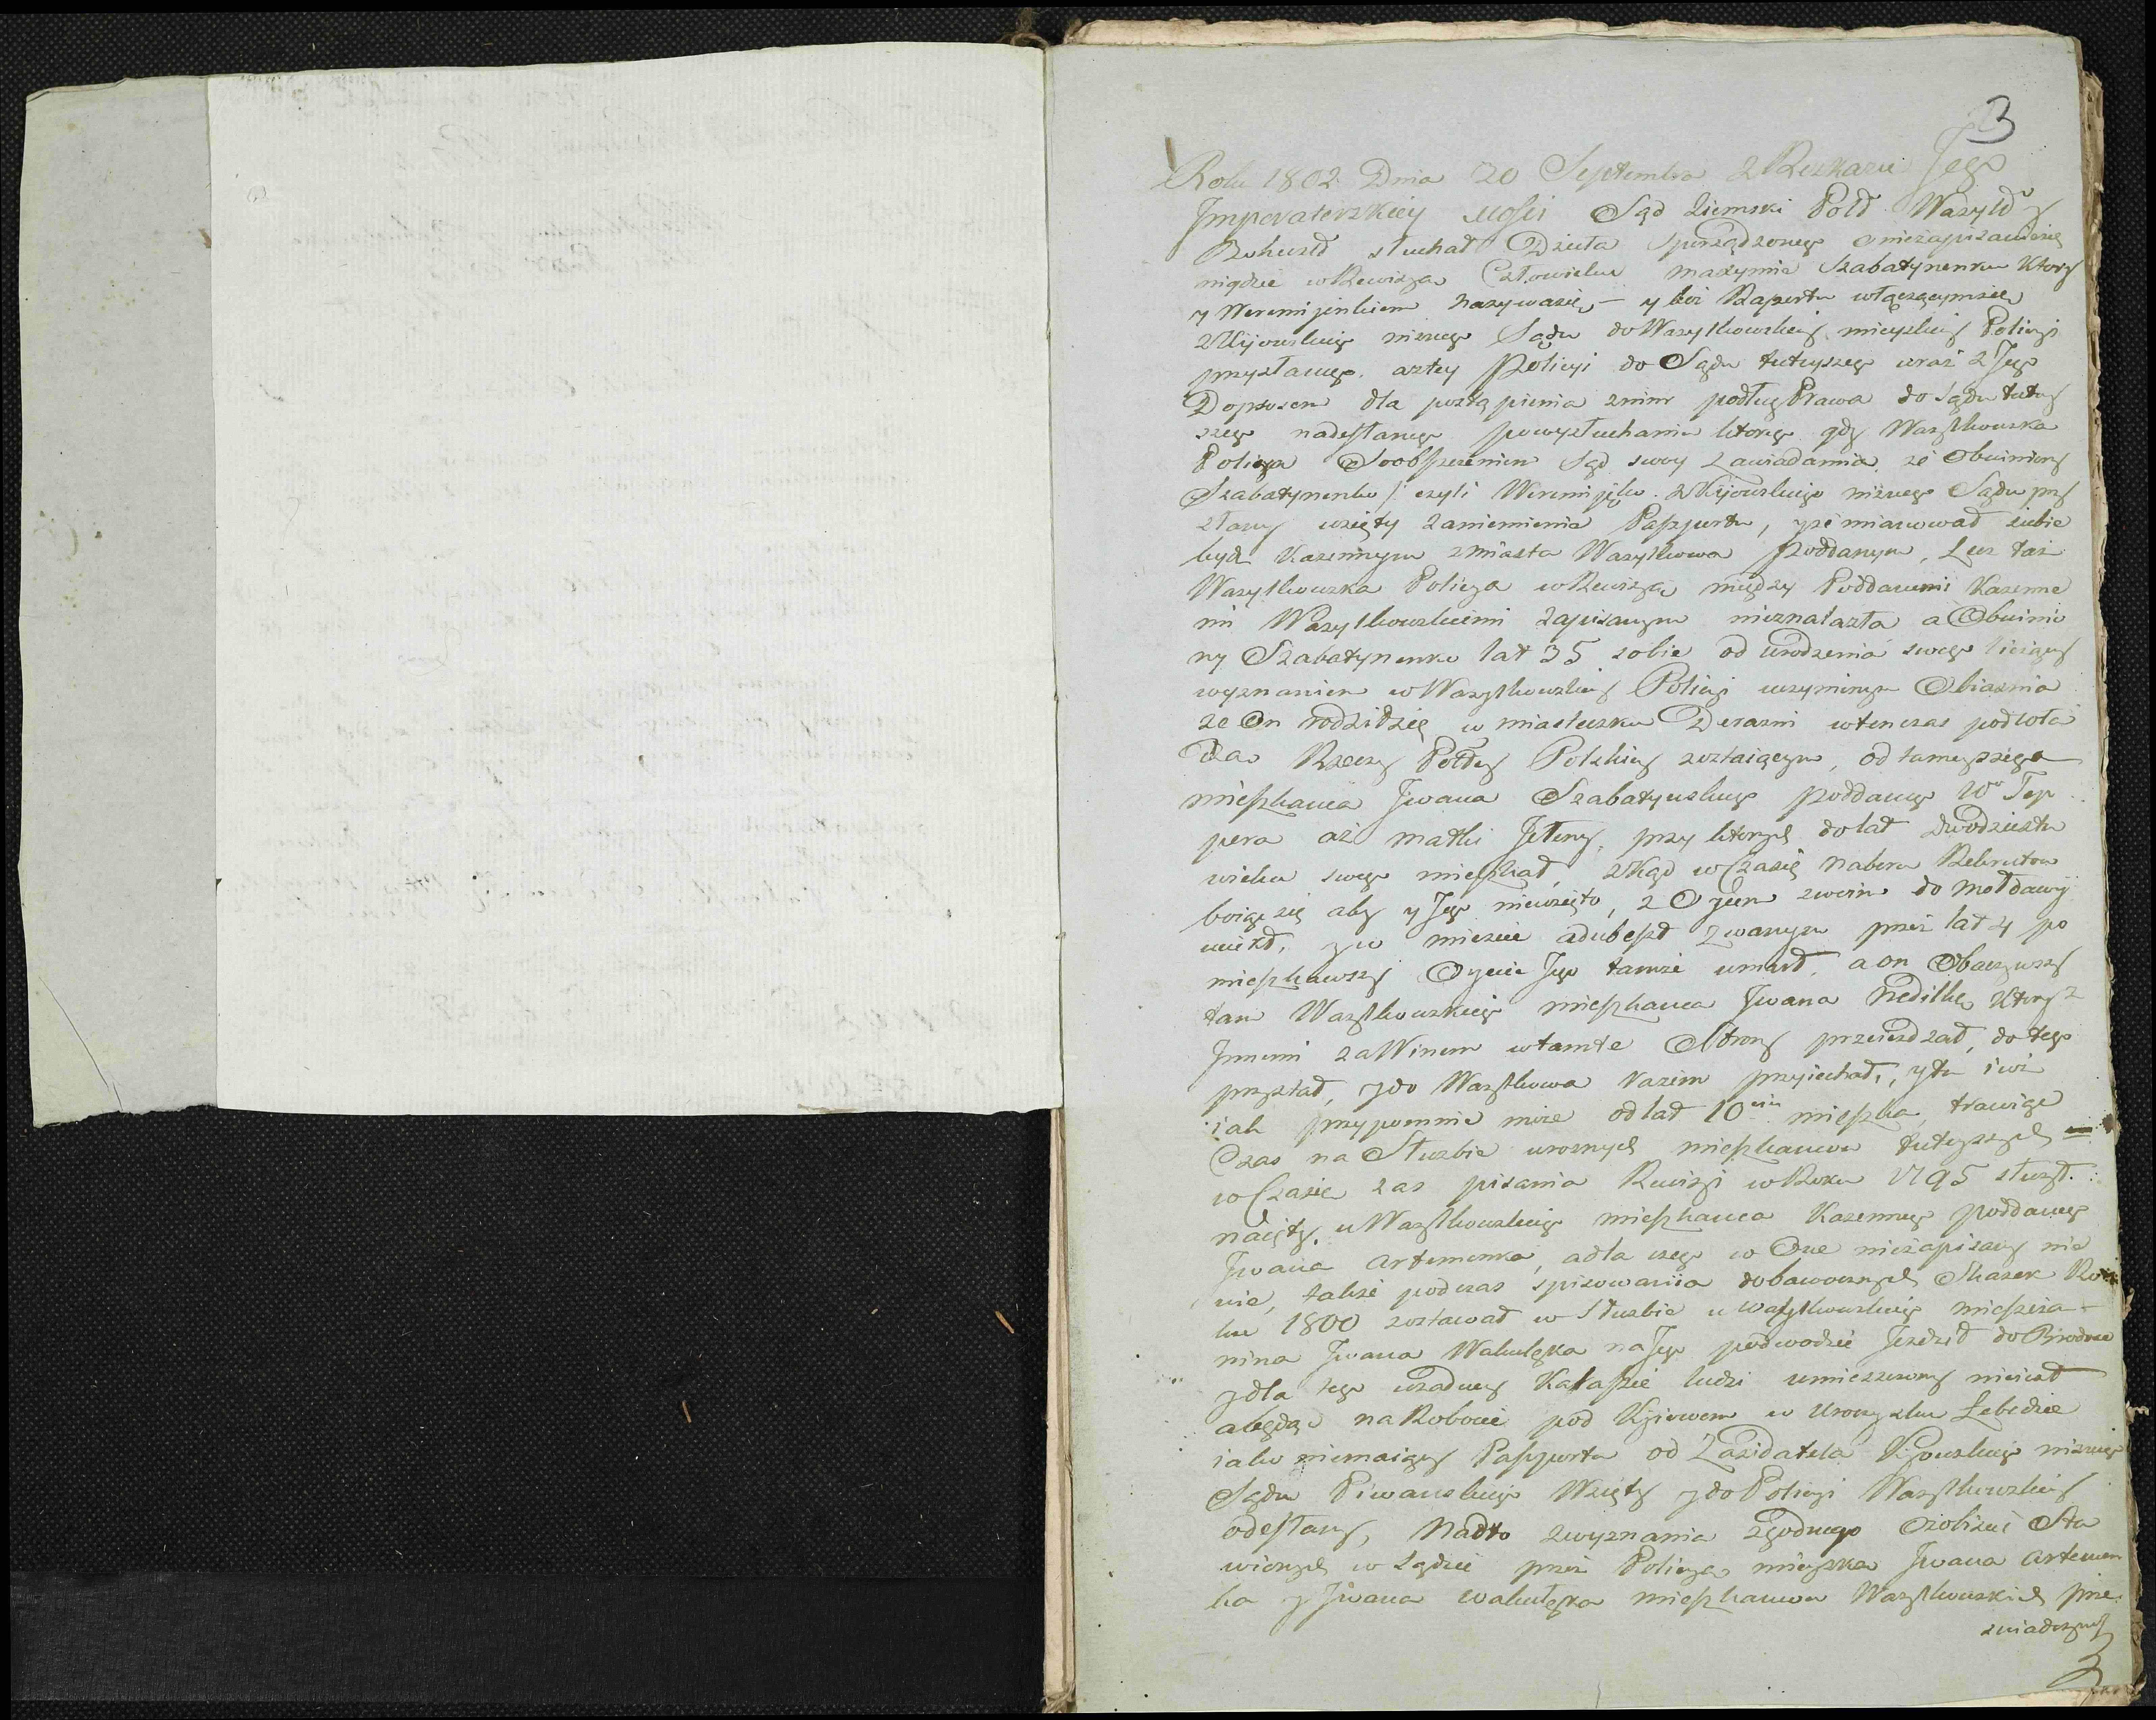 3
Roku 1802 Dnia 20 Septembra z Rozkazu Jego
Jmperatorskiey Mości Sąd Ziemski Połł Wasylł
Bohusł słuchał Dzieła Sporządzonego o niezapisaniusię
nigdzie w Rewizyą Człowieku Maxymie Szabatynenku Ktory
y Weremijenkiem nazywasię — y bez Paszportu włączącymsię
z Kijowskiego niznego Sądu do Wasylkowskiey mieyskiey Policyi
przysłanego. a z tey Policyi do Sądu tutuyszego wraz z Jego
Doprosem dla postąpienia z nim podług Prawa do Sądu tutuy
szego nadesłanego powysłuchaniu ktorego gdy Wasylkowska
Policya Soobszczeniem Sąd swoy zawiadamia, że Obwiniony
Szabatynenko / czyli Weremijęko z Kijowskiego niznego Sądu przy
słany wzięty zaniemienie Paszportu, y że mianował siebie
bydź Kazennym z miasta Wasylkowa poddanym, Lecz taż
Wasylkowska Policya w Rewizyi między Poddanemi Kazenne
mi Wasylkowskiemi zapisanym nieznalazła a Obwinio
ny Szabatynenko lat 35 sobie od urodzenia swego liczący
wyznaniem w Wasylkowskiey Policyi uczynionym Obiasnia
że On rodziłsię w miasteczku Derazni wtenczas pod wła
dza Rzeczy Połłey Polskiey zostaiącym, od tameyszego
mieszkańca Jwana Szabatynskiego poddanego Wo Tep
pera oż matki Jeleny, przy ktorych do lat dwódziestu
wieku swego mieszkał, zkąd w Czasie naboru Rekrutow
boiąc się aby y Jego niewzięto, z Oycem swoim do Mołdawij
uciekł, y w mieście adubeszt zwanym przez lat 4 po
mieszkawszy Oyciec Jego tamże umarł, a on Obaczywszy
tam Wasylkowskiego mieszkańca Jwana Nedilkę Ktory z
Jnnemi za Winem w tamte Strony przeiezdzał, do tego
przystał, y do Wasylkowa razem przyiechał, y tu iuż
iak przypomnieć może od lat 10ciu mieszka, trawiąc
Czas na Służbie uroznych mieszkancow tuteyszych —
w Czasie zas pisania Rewizyi w Roku 1795 służył.
naięty. u Wasylkowskiego mieszkańca Kazennego poddanego
Jwana Artemenka, a dla czego w One niezapisany nie
wie, także podczas spisowaniia dobawocznych Skazek Ro
ku 1800 zostawał w Służbie u Wasylkowskiego mieszcza-
nina Jwana Wakulęka na Jego podwodzie Jezdził do Brodow
y dla tego w zadney Kalaszie ludzi umieszczony nieiest
a będąc na Robocie pod Kijowem w Uroczysku Łebedzie
iako niemaiący Paszportu od Zasidatela Kijowskiego niznego
Sądu Piwanskiego Wzięty y do Policyi Wasylkowskiey
odesłany, Nadto zwyznania zgodnego Osobiscie Sta
wionych w sądzie przez Policyą mieyską Jwana Artemen
ka y Jwana Wakulęka mieszkancow Wasylkowskich prze
swiadczony